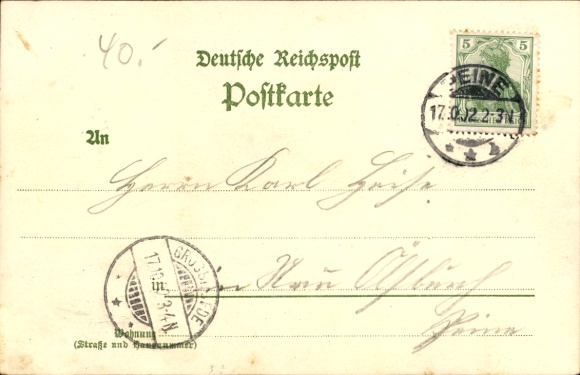 40.-
Deutsche Reichspost
Postkarte
5 5
PEINE
17.10.02.2-3N
An
Herrn Karl Heise
17.10. 3-4N
in
in Neu Ölsburg
Wohnung
Peine
(Straße und Hausnummer)